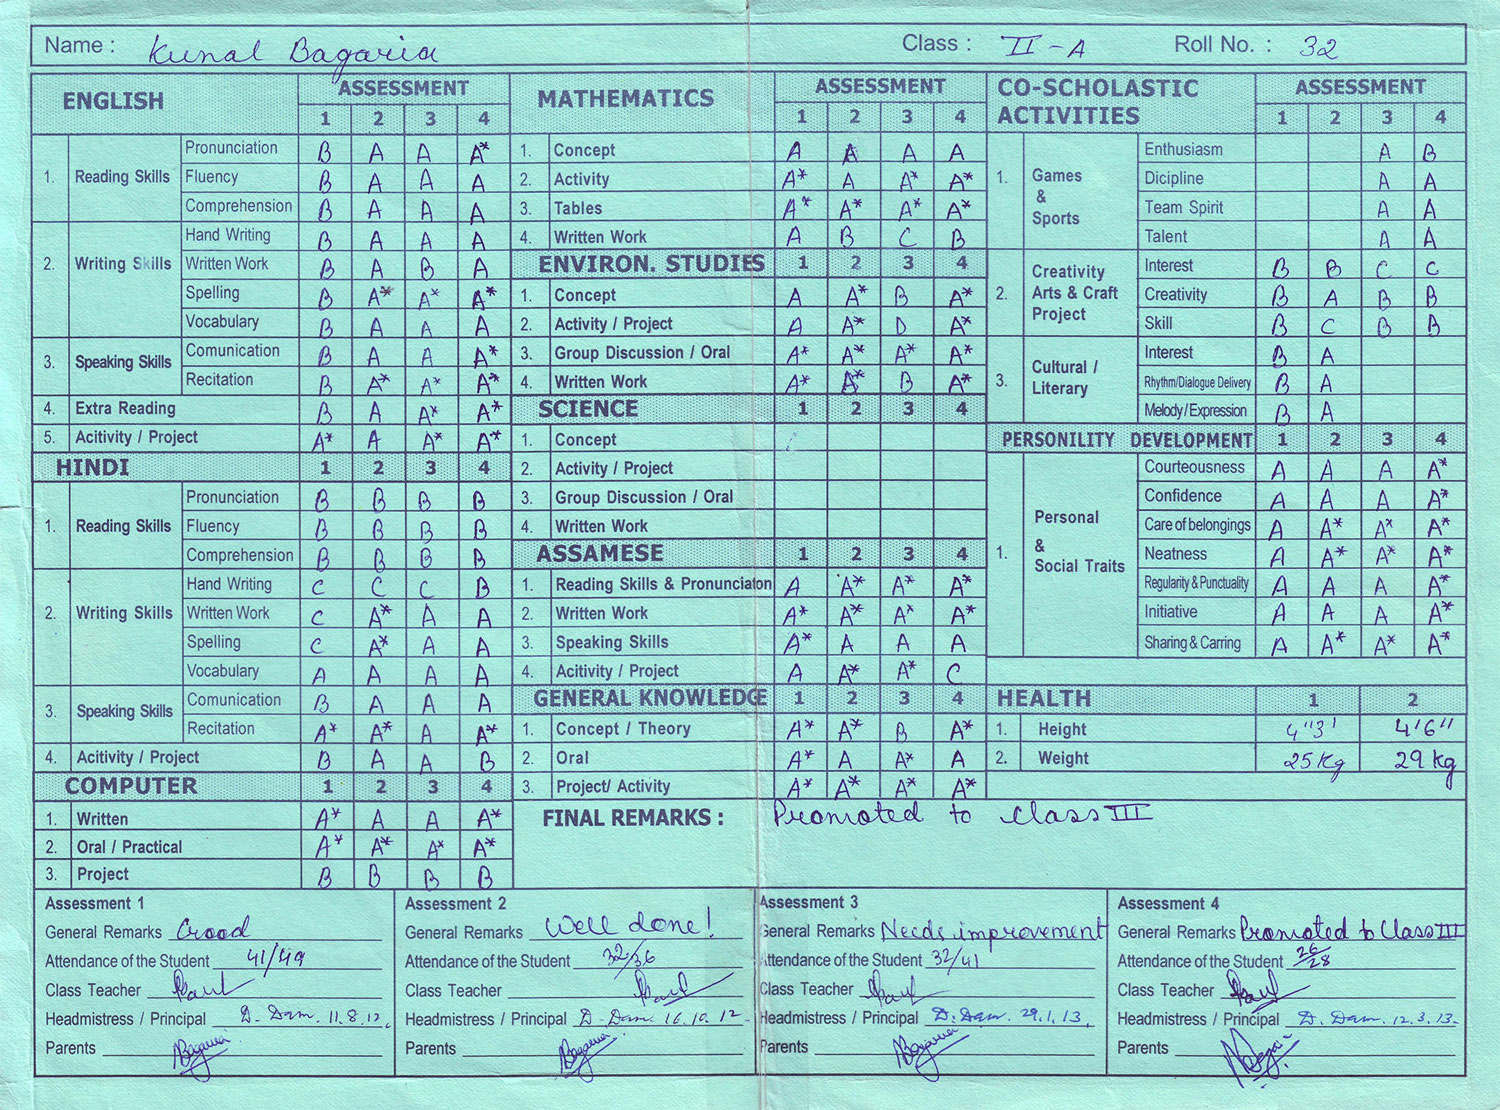 Name : Kunal Bagaria Class : II - A Roll No. : 32
ENGLISH ASSESSMENT
1 2 3 4
1. Reading Skills Pronunciation B A A A*
Fluency B A A A
Comprehension B A A A
2. Writing Skills Hand Writing B A A A
Written Work B A B A
Spelling B A* A* A*
Vocabulary B A A A
3. Speaking Skills Comunication B A A A*
Recitation B A* A* A*
4. Extra Reading B A A* A*
5. Acitivity / Project A* A A* A*
HINDI 1 2 3 4
1. Reading Skills Pronunciation B B B B
Fluency B B B B
Comprehension B B B B
2. Writing Skills Hand Writing C C C B
Written Work C A* A A
Spelling C A* A A
Vocabulary A A A A
3. Speaking Skills Comunication B A A A
Recitation A* A* A A*
4. Acitivity / Project B A A B
COMPUTER 1 2 3 4
1. Written A* A A A*
2. Oral / Practical A* A* A* A*
3. Project B B B B
MATHEMATICS ASSESSMENT
1 2 3 4
1. Concept A A A A
2. Activity A* A A* A*
3. Tables A* A* A* A*
4. Written Work A B C B
ENVIRON. STUDIES 1 2 3 4
1. Concept A A* B A*
2. Activity / Project A A* D A*
3. Group Discussion / Oral A* A* A* A*
4. Written Work A* A* B A*
SCIENCE 1 2 3 4
1. Concept
2. Activity / Project
3. Group Discussion / Oral
4. Written Work
ASSAMESE 1 2 3 4
1. Reading Skills & Pronunciaton A A* A* A*
2. Written Work A* A* A* A*
3. Speaking Skills A* A A A
4. Acitivity / Project A A* A* C
GENERAL KNOWLEDGE 1 2 3 4
1. Concept / Theory A* A* B A*
2. Oral A* A A* A
3. Project/ Activity A* A* A* A*
CO-SCHOLASTIC ASSESSMENT
ACTIVITIES 1 2 3 4
1. Games & Sports Enthusiasm A B
Dicipline A A
Team Spirit A A
Talent A A
2. Creativity Arts & Craft Project Interest B B C C
Creativity B A B B
Skill B C B B
3. Cultural / Literary Interest B A
Rhythm/Dialogue Delivery B A
Melody/Expression B A
PERSONILITY DEVELOPMENT 1 2 3 4
1. Personal & Social Traits Courteousness A A A A*
Confidence A A A A*
Care of belongings A A* A* A*
Neatness A A* A* A*
Regularity & Punctuality A A A A*
Initiative A A A A*
Sharing & Carring A A* A* A*
HEALTH 1 2
1. Height 4"3' 4'6"
2. Weight 25 Kg 29 Kg
FINAL REMARKS : Promoted to Class III
Assessment 1
General Remarks Good
Attendance of the Student 41/49
Class Teacher Paul
Headmistress / Principal D. Dam. 11.8.12.
Parents Bagaria
Assessment 2
General Remarks Well done!
Attendance of the Student 32/36
Class Teacher Paul
Headmistress / Principal D. Dam. 16.10.12.
Parents Bagaria
Assessment 3
General Remarks Needs improvement
Attendance of the Student 32/41
Class Teacher Paul
Headmistress / Principal D. Dam. 29.1.13.
Parents Bagaria
Assessment 4
General Remarks Promoted to Class III
Attendance of the Student 26/28
Class Teacher Paul
Headmistress / Principal D. Dam. 12.3.13.
Parents